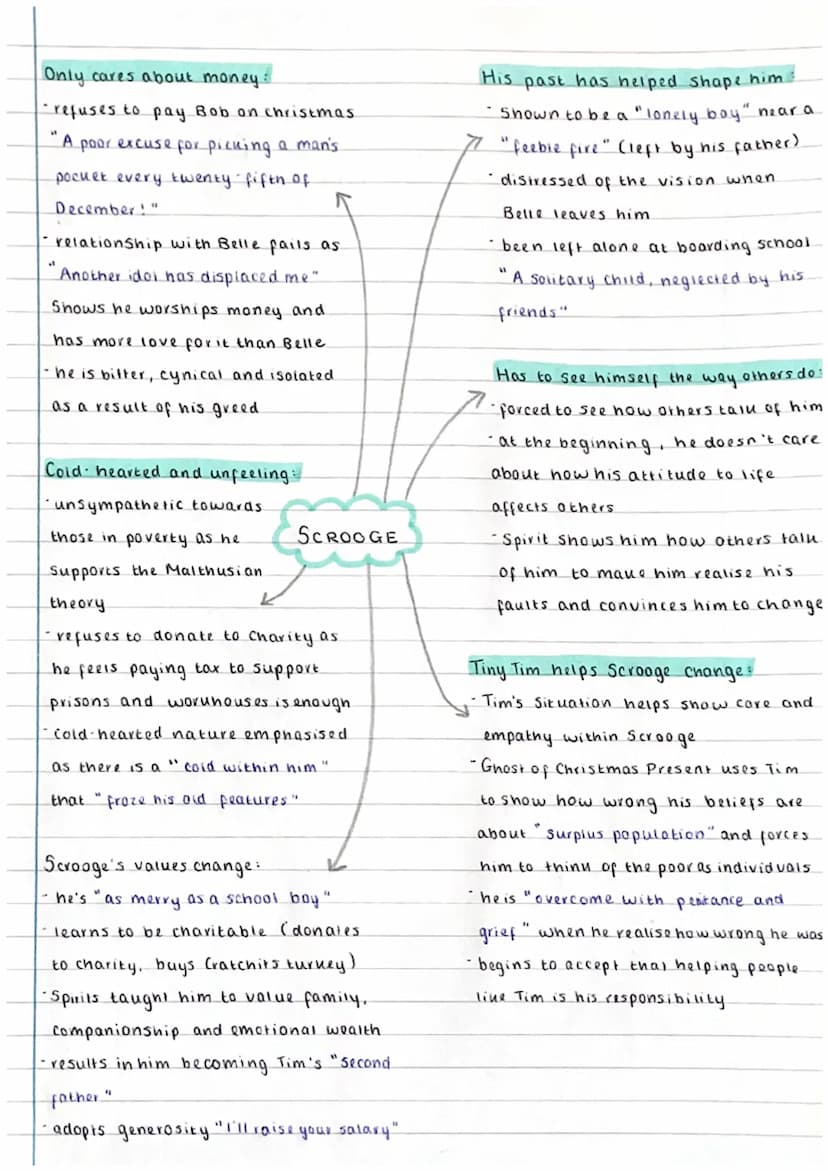 Only cares about money:
- refuses to pay Bob on christmas
"A poor excuse for picking a man's
pocket every twenty-fifth of
December!"
- relationship with Belle fails as
"Another idol has displaced me"
Shows he worships money and
has more love for it than Belle
- he is bitter, cynical and isolated
as a result of his greed
Cold-hearted and unfeeling:
- unsympathetic towards
those in poverty as he
supports the Malthusian
theory
- refuses to donate to charity as
he feels paying tax to support
prisons and workhouses is enough
- cold-hearted nature emphasised
as there is a "cold within him"
that "froze his old features"
Scrooge's values change:
- he's "as merry as a school boy"
- learns to be charitable (donates
to charity, buys Cratchits turkey)
- Spirits taught him to value family,
companionship and emotional wealth
- results in him becoming Tim's "second
father"
- adopts generosity "I'll raise your salary"
SCROOGE
His past has helped shape him:
- Shown to be a "lonely boy" near a
"feeble fire" (left by his father)
- distressed of the vision when
Belle leaves him
- been left alone at boarding school
"A solitary child, neglected by his
friends"
Has to see himself the way others do:
- forced to see how others talk of him
- at the beginning, he doesn't care
about how his attitude to life
affects others
- Spirit shows him how others talk
of him to make him realise his
faults and convinces him to change
Tiny Tim helps Scrooge change:
- Tim's situation helps show care and
empathy within Scrooge
- Ghost of Christmas Present uses Tim
to show how wrong his beliefs are
about "surplus population" and forces
him to think of the poor as individuals
- he is "overcome with penitance and
grief" when he realise how wrong he was
- begins to accept that helping people
like Tim is his responsibility